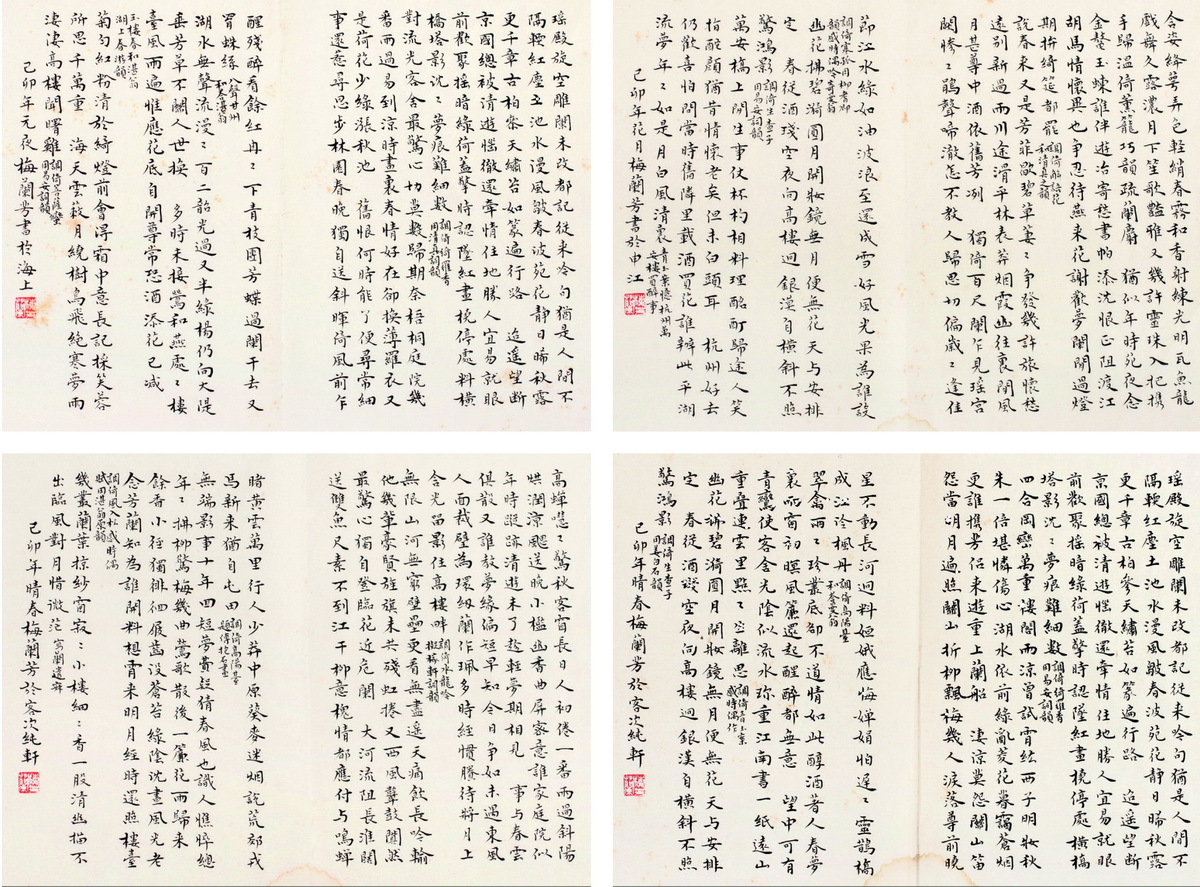 瑶殿旋空雕闌未改都記從来吟句猶是人間不
隔輭紅塵土池水漫風皺春波苑花靜日晞秋露
更千章古柏參天繡苔如篆遍行路　迢遥望斷
京國總被清遊惱徹還牽情住地勝人宜易就眼
前歡聚摇暗綠荷蓋擎時認墜紅畫橈停處料橫
橋塔影沈々夢痕難細數 調倚綺羅香 用清真詞韻
對流光客舍最驚心切莫數歸期奈梧桐庭院幾
番過易到涼時畫裏春情好在卻換薄羅衣又
是荷花少綠漲秋池　舊恨何時能了便尋常細
事還意尋思步林園春晚獨自送斜暉倚風前乍
醒殘醉看餘紅冉々下青枝圍芳蝶過闌干去又
罥蛛絲 八聲甘州
湖水無聲流漫々百二韶光過又半綠楊仍向大隄
垂芳草不關人世換　多時未接鶯和燕處々樓
臺風雨遍惟應花底自開尊常恐酒添花已減
玉樓春和湛翁 湖上春游韻
菊匀紅粉清於綺燈前會得霜中意長記採笑蓉
所思千萬重　海天雲萩月繞樹烏飛絶寒夢雨
淒淒高樓聞曙雞 調倚菩薩蠻 用易安詞韻
己卯年元夜梅蘭芳書於海上
合姿弄色輕綃春霧和香射練空光明瓦魚龍
戲舞久露濃月下笙歌豔雅又幾許靈珠入把携
手歸温倚薰籠巧韻疏蘭麝　猶似年時苑夜念
金鼇玉蝀誰伴遊冶寄愁書帕添沈恨正阻渡江
胡馬情懷異也爭忍待燕来花謝歡夢闌闌過燈
期拚綺筵都罷 調倚解語花 和清真元韻
説春来又是芳菲歇碧草萋々爭發幾許旅懷愁
遠别新過雨川途滑乎林表莽烟霞幽往裏閒風
月甚尊中酒依舊芳冽　獨倚百尺闌乍見瑶宫
闕慘々鵑聲啼澈怎不教人歸思切偏歲々逢佳
節江水綠如油波浪至還成雪好風光果為誰設
調倚塞孤用柳耆卿
幽花拂碧漪圓月開妝鏡無月便無花天与安排
定　春從酒殘空夜向高樓迥銀漢自橫斜不照
驚鴻影 調倚生查子 用易安詞韻
萬安橋上閒生事仗杯杓相料理酩酊歸途人笑
指酡顔猶昔情懷老矣但未白頭耳　杭州好去
仍歡喜怕問當時舊隣里載酒買花誰辨此平湖
流夢年々如是月白風清裏 青玉案憶杭州萬安樓買醉事
己卯年花月梅蘭芳書於申江
高蟬嘒々驚秋客窗長日人初倦一番雨過斜陽
烘潤涼颸送晚小檻幽香曲屏家意誰家庭院似
年時蹤跡清遊未了趁輕夢期相見　事与春雲
俱散又誰教夢緣偏短早知今日爭如未遇東風
人面裁璧為環紉蘭作珮多時經慣勝待將月上
含光留影住高樓畔 調倚水龍吟 擬稼軒詞韻
無限山河無窮壁壘更看無盡遥天痛飲長吟輸
他幾輩豪賢旌旗未共殘虹捲又西風鼙鼓闐然
最驚心獨自登臨花近危闌　大河流阻長淮闊
送雙魚尺素不到江干柳意槐情都應付与鳴蟬
暗黄雲萬里行人少莽中原葵麥迷烟説荒郊戎
馬新来猶自屯田 調倚高陽臺 題傳抱石畫
無端影事十年四短夢費疑猜春風也識人憔悴總
年々拂柳驚梅幾曲鶯歌散後一簾花雨歸来
餘香小徑獨徘徊屐齒没蒼苔綠陰沈晝風光老
念芳蘭知為誰開料想霄来明月經時還照樓臺
調倚風入松 感時偶賦用湛翁原韻
幾叢蘭葉掠紗窗寂々小樓細々香一股清幽描不
出臨風對月惜微茫 寫蘭遺興
己卯年晴春梅蘭芳於客次純軒
瑶殿旋空雕闌未改都記從来吟句猶是人間不
隔輭紅塵土池水漫風皺春波苑花靜日晞秋露
更千章古柏參天繡苔如篆遍行路　迢遥望斷
京國總被清遊惱徹還牽情住地勝人宜易就眼
前歡聚摇暗綠荷蓋擎時認墜紅畫橈停處橫橋
塔影沈々夢痕難細數 調倚綺羅香 用易安詞韻
四合岡巒萬重樓閣雨涼曾試霄紈西子明妝秋
朱一倍堪憐傷心湖水依前綠亂菱花暮靄蒼烟
更誰攜芳侣来遊重上蘭船　淒涼莫怨關山笛
怨當明月遍照關山折柳飄梅幾人淚落尊前曉
星不動長河迥料姮娥應悔嬋娟怕遲々靈鵲橋
成江冷楓丹 調倚高陽臺
翠禽兩々珍叢底卻不道情如此醇酒著人春夢
裏而窗初暝風簾還起醒醉都無意　望中可有
青鸞使客舍光陰似流水珍重江南書一紙遠山
重疊連雲里點々皆離思 調倚青玉案 感時偶作
幽花拂碧漪圓月開妝鏡無月便無花天与安排
定　春從酒殘空夜向高樓迥銀漢自橫斜不照
驚鴻影 調倚生查子 用姜白石韻
己卯年晴春梅蘭芳於客次純軒